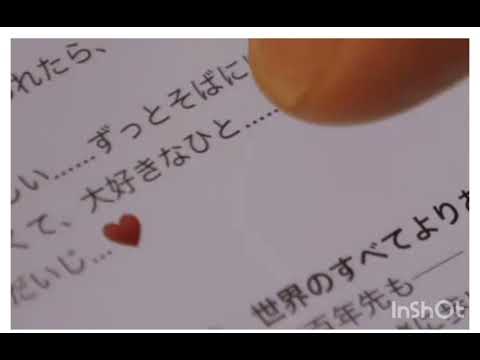 れたら、
しい……ずっとそばに
くて、大好きなひと……
だいじ…♥
世界のすべてより
百年先も——
InShOt